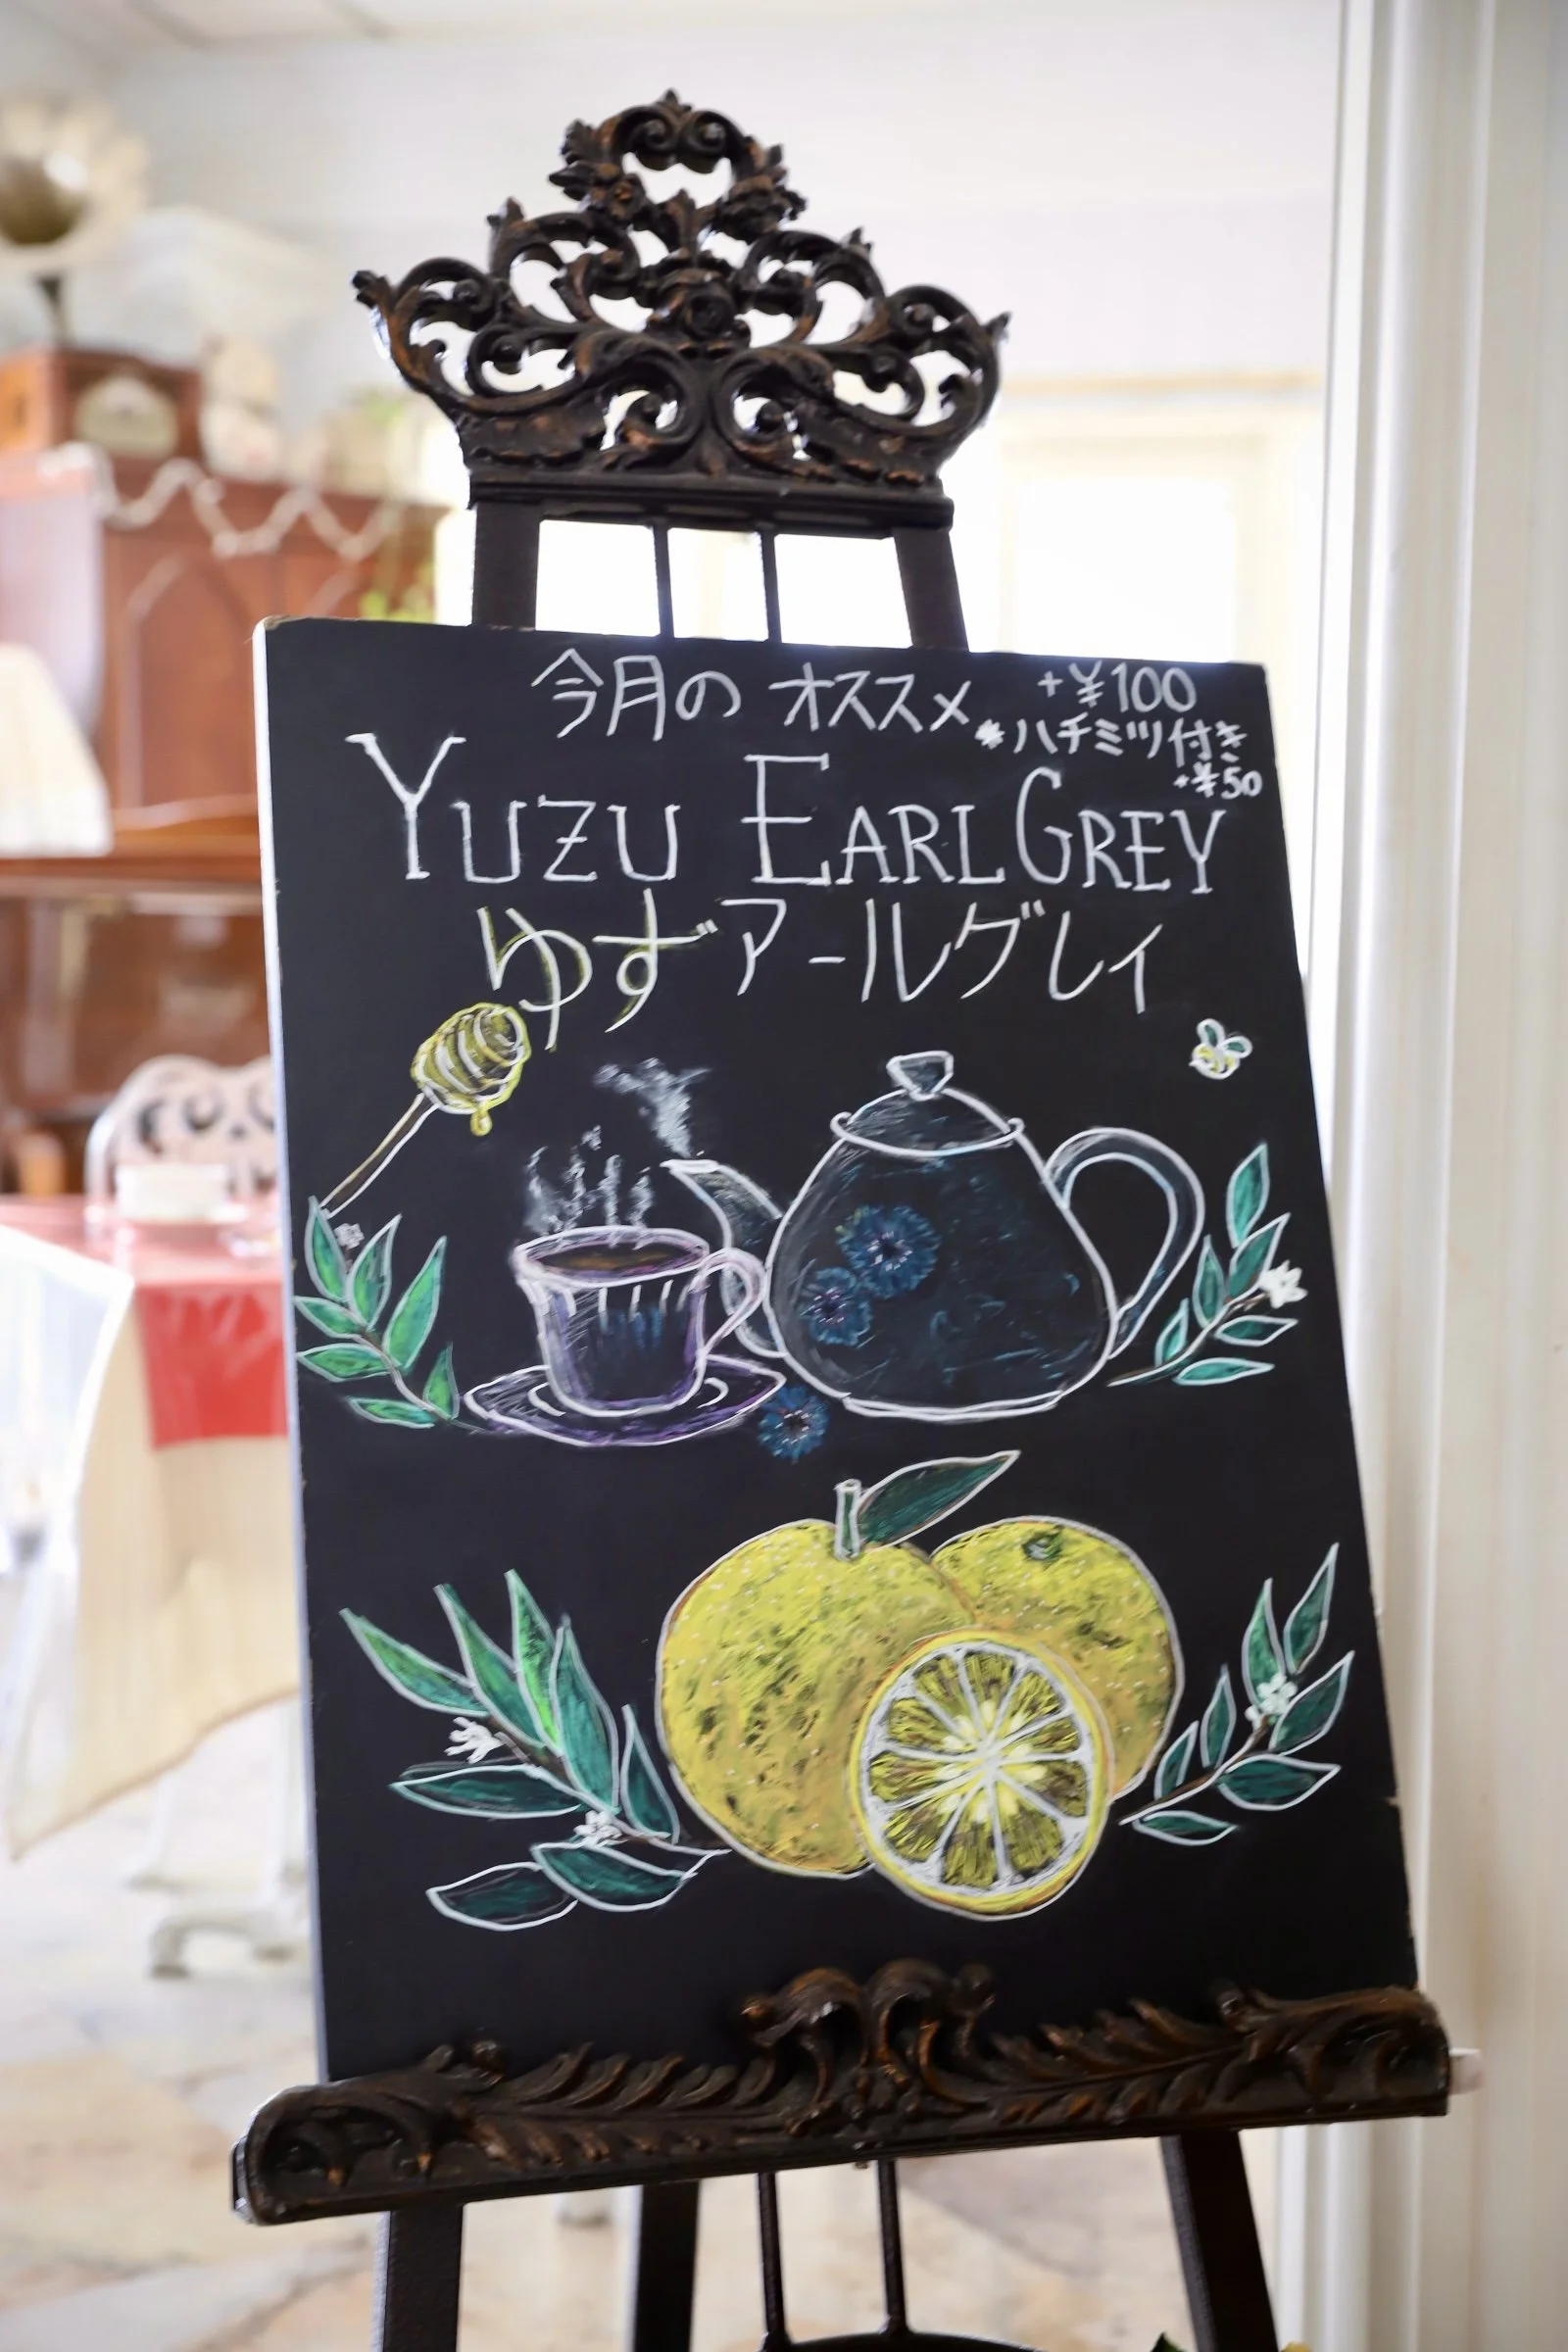 今月の オススメ +¥100
*ハチミツ付き
+¥50
YUZU EARL GREY
ゆずアールグレイ